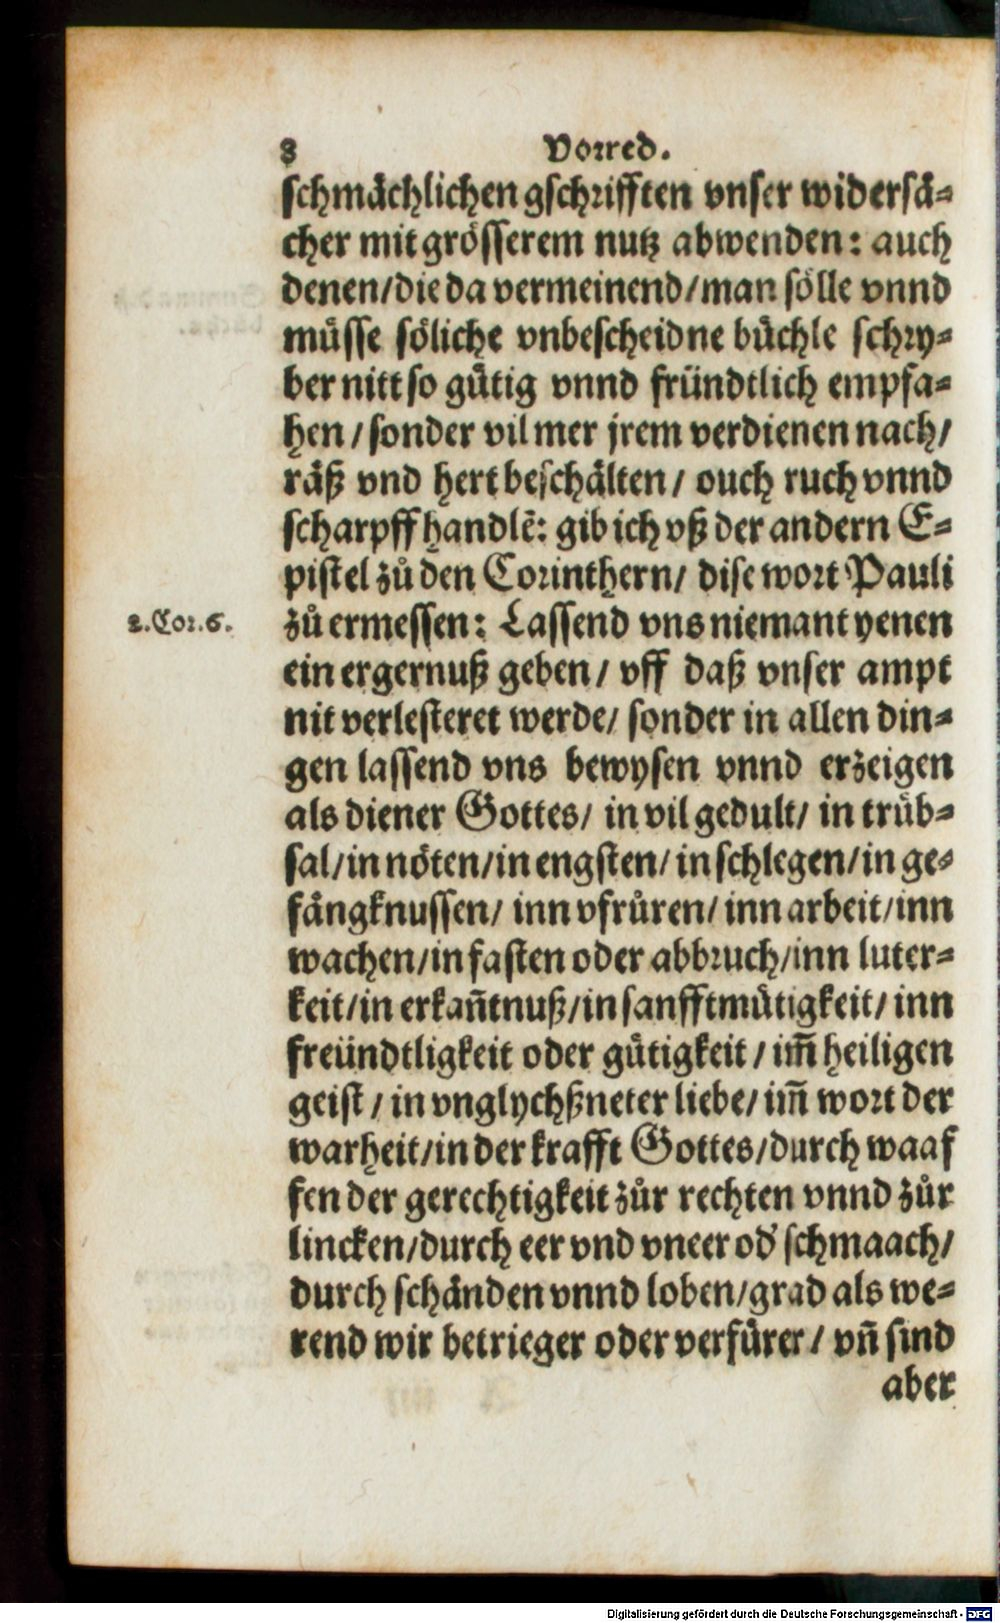 8 Vorred.
schmächlichen gschrifften vnser widersä-
cher mit grösserem nutz abwenden: auch
denen/die da vermeinend/man sölle vnnd
müsse söliche vnbescheidne büchle schry-
ber nitt so gütig vnnd fründtlich empfa-
hen/sonder vil mer jrem verdienen nach/
räß vnd hert beschälten/ ouch ruch vnnd
scharpff handlẽ: gib ich vß der andern E-
pistel zů den Corinthern/ dise wort Pauli
2.Cor.6.
zů ermessen: Lassend vns niemant yenen
ein ergernuß geben/ vff daß vnser ampt
nit verlesteret werde/ sonder in allen din-
gen lassend vns bewysen vnnd erzeigen
als diener Gottes/ in vil gedult/ in trüb-
sal/in nöten/in engsten/in schlegen/in ge-
fängknussen/ inn vfrůren/inn arbeit/inn
wachen/in fasten oder abbruch/inn luter-
keit/in erkañtnuß/in sanfftmütigkeit/inn
freündtligkeit oder gütigkeit/im̃ heiligen
geist/in vnglychßneter liebe/im̃ wort der
warheit/in der krafft Gottes/durch waaf
fen der gerechtigkeit zůr rechten vnnd zůr
lincken/durch eer vnd vneer od' schmaach/
durch schänden vnnd loben/grad als we-
rend wir betrieger oder verfürer/ vñ sind
aber
Digitalisierung gefördert durch die Deutsche Forschungsgemeinschaft - DFG